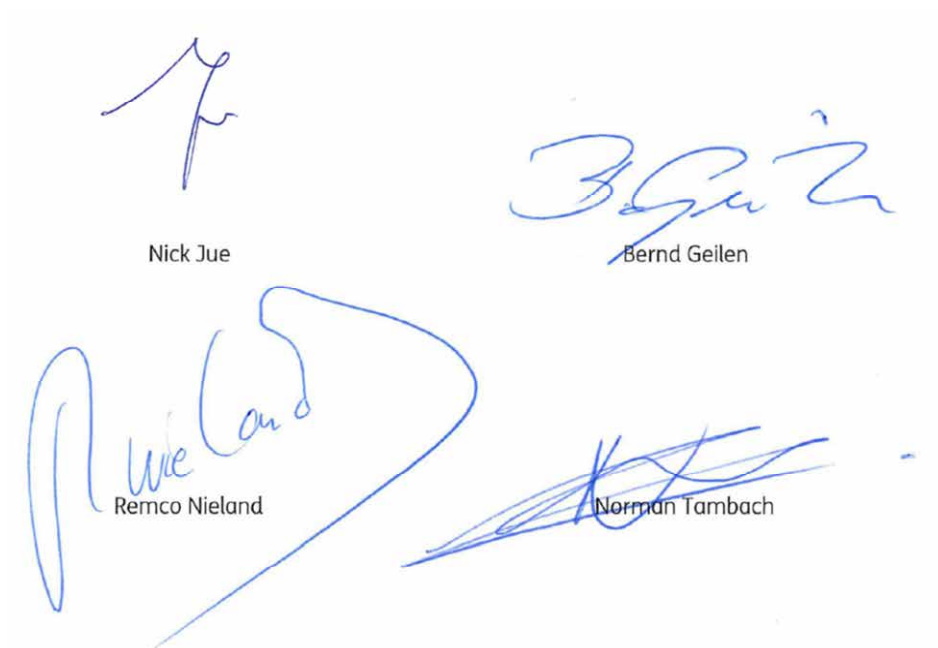 Nick Jue
Bernd Geilen
Remco Nieland
Norman Tambach